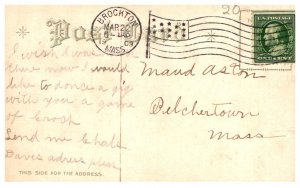 20
BROCKTON
MAR 2
MASS.
Post Card
U.S. POSTAGE
ONE CENT
I wish I was
there now I would
like to dance a jig
with you & a game
of
Send me
Daves adress please
Maud Aston
Belchertown
Mass
THIS SIDE FOR THE ADDRESS.